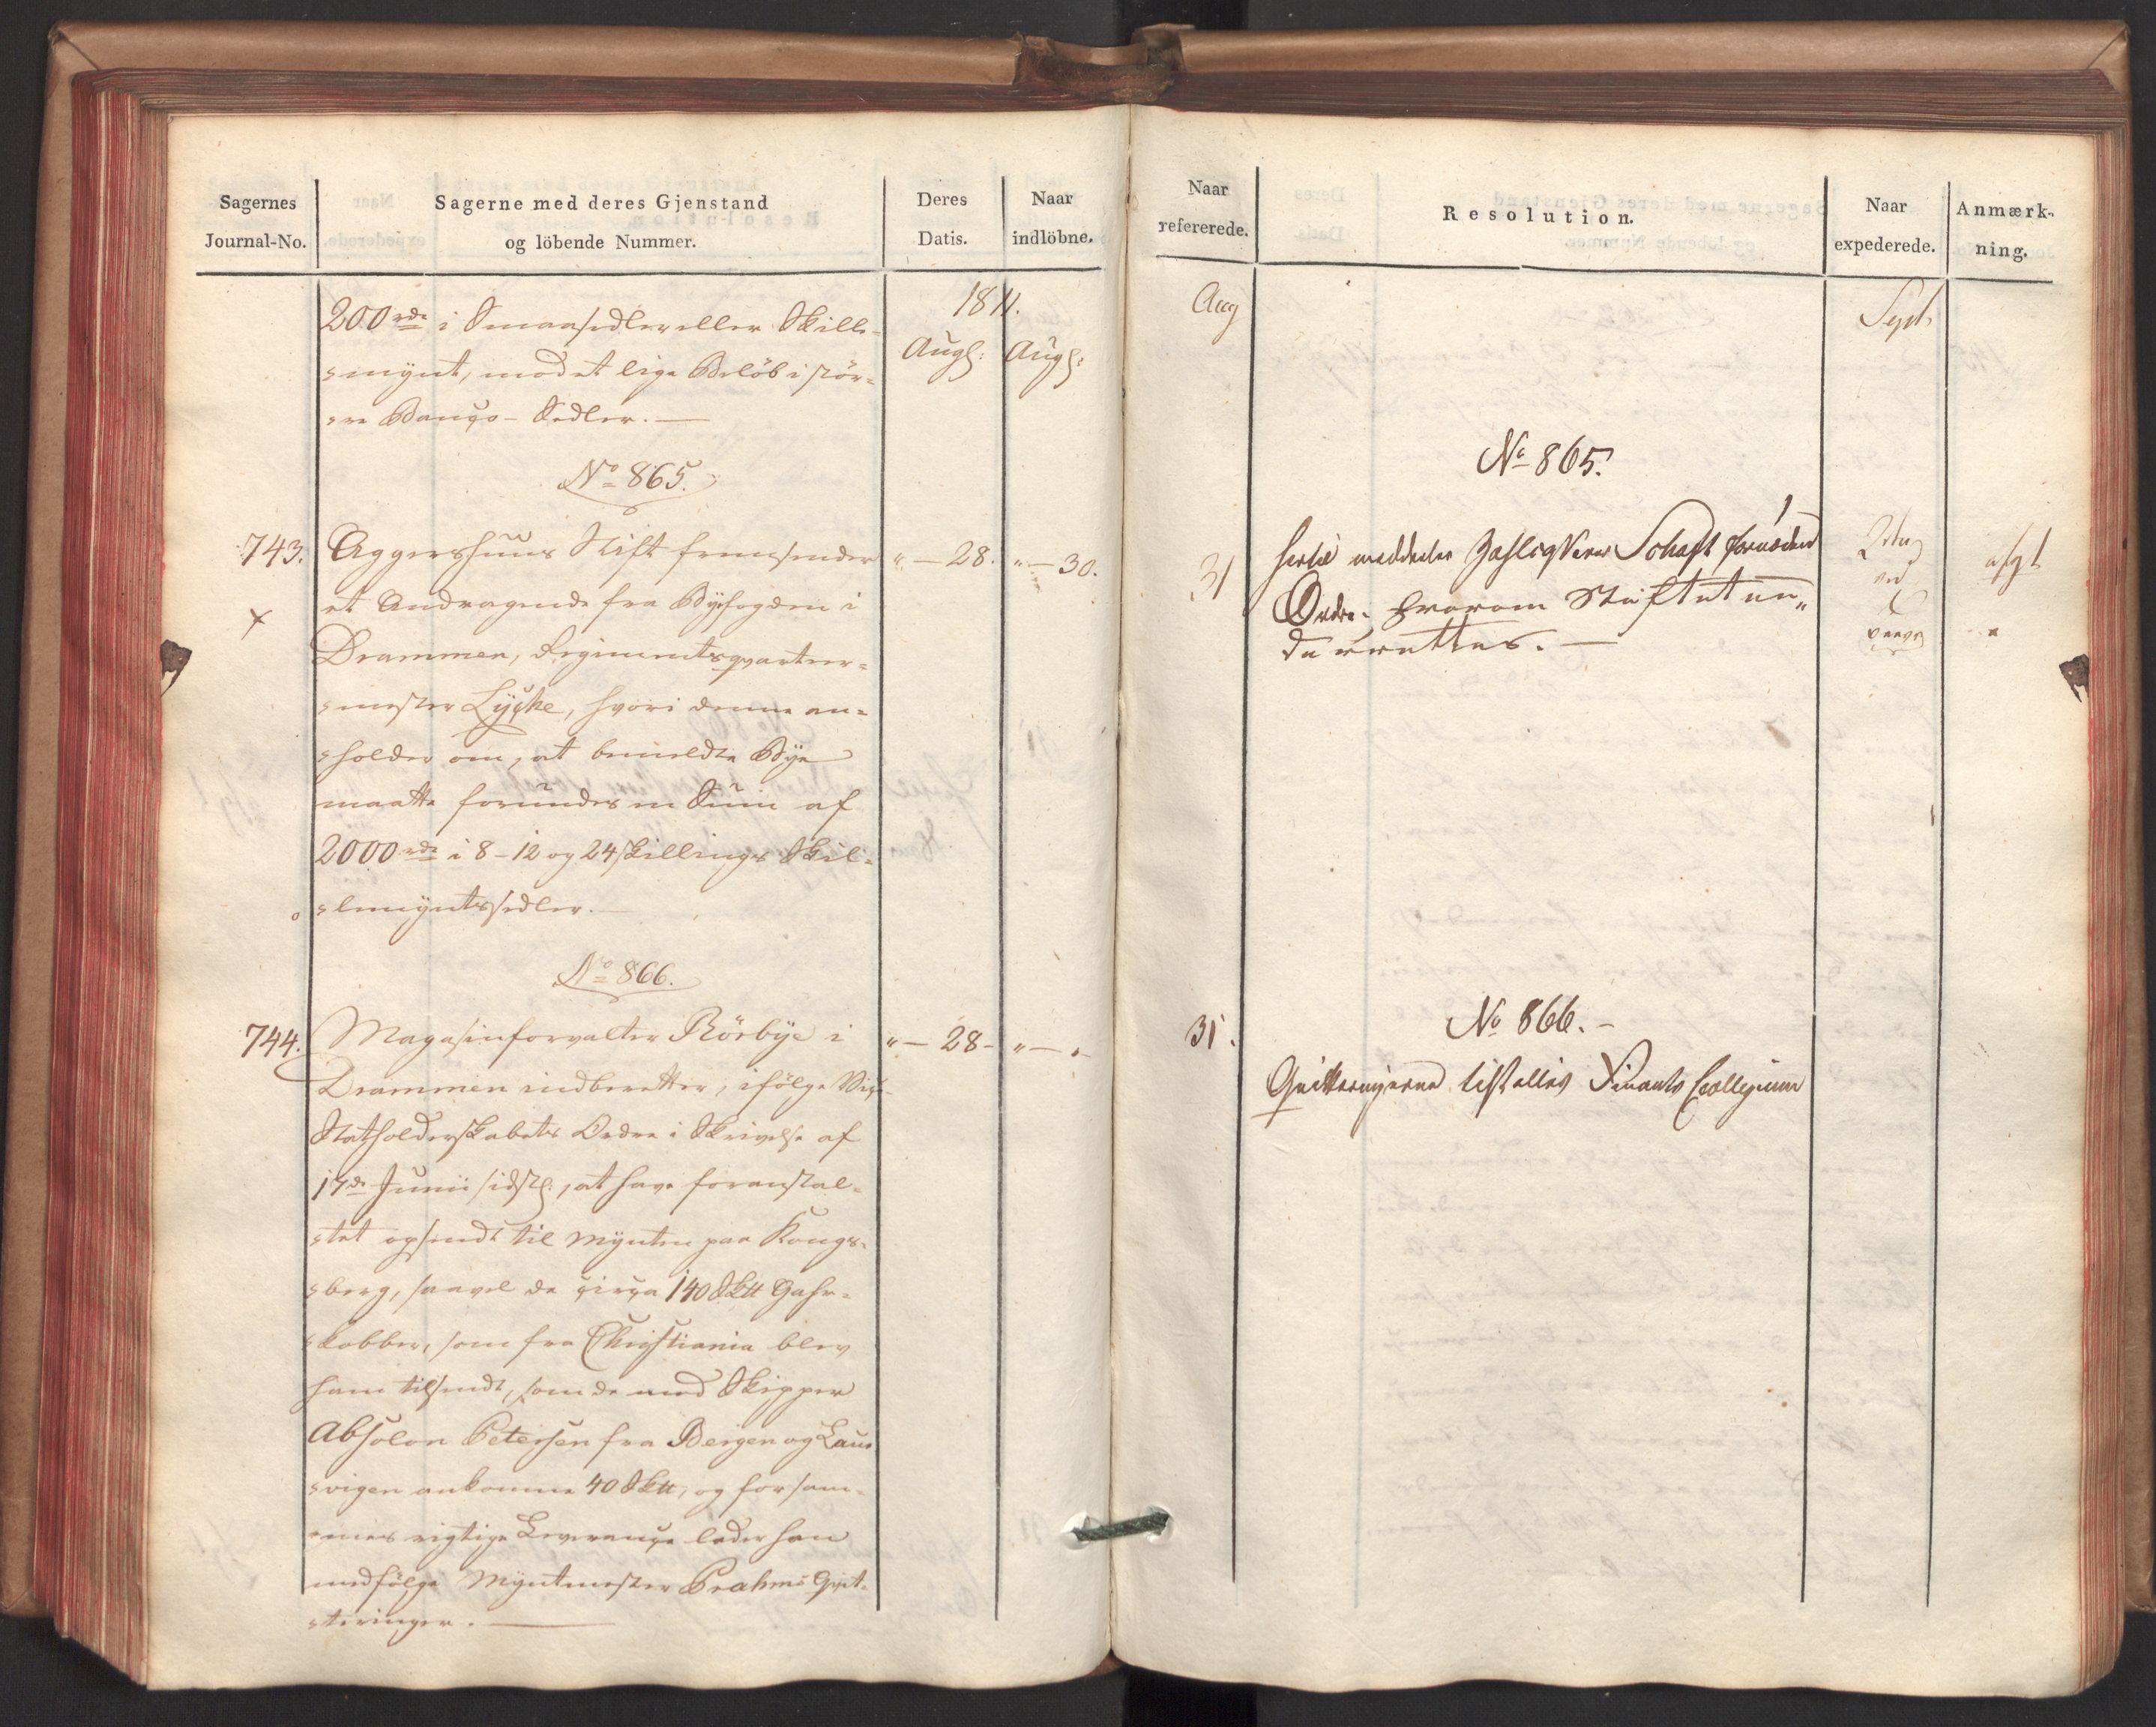 Sagernes
Journal-No.
Sagerne med deres Gjenstand
og löbende Nummer.
Deres
Datis.
Naar
indlöbne.
1811.
Augs: Augs:
200 rdr i Smaasedler eller Skille-
-mynt, mod et lige Belöb i stör-
-re Banco-Sedler. —
No 865.
743. Aggershuus Stift fremsender " — 28. " — 30.
et Andragende fra Byefogden i
Drammen, Regimentsqvarteer-
-mester Lycke, hvori denne an-
-holder om, at bemeldte Bye
maatte forundes en Sum af
2000 rdr i 8-12 og 24 skillings Skil-
-lemyntssedler. —
No 866.
744. Magasinforvalter Rörbye i " — 28 - " — "
Drammen indberetter, ifölge Vice-
Statholderskabets Ordre i Skrivelse af
17de Junii sidstl:, at have foranstal-
-tet opsendt til Mynten paa Kongs-
-berg, saavel de circa 140 Sk℔ Gahr-
-kobber, som fra Christiania blev
ham tilsendt, som de med Skipper
Absolon Petersen fra Bergen og Laur-
-vigen ankomne 40 Sk℔, og for sam-
-mes rigtige Leverance lader han
medfölge Myntmester Prahms Qvit-
-teringer. —
Naar
refererede.
Resolution.
Naar
expederede.
Anmærk-
ning.
Aug Sept.
No 865.
31 Hertil meddeles Zahlcasserer Schaft fornöden 2den afgt
Ordre. hvorom Stiftet un-
derrettes. —
No 866. -
31. Qvitteringerne tilstilles Finants Collegium